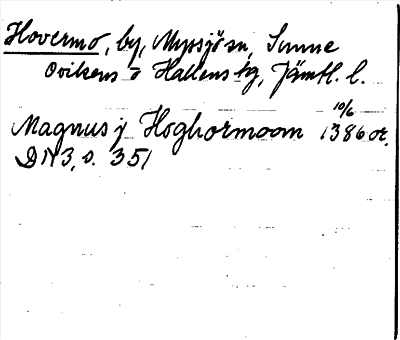 Hovermo, by, Myssjö sn, Sunne
Ovikens o Hallens tg, Jämtl. l.
Magnus j Hoghormoom 10/6 1386 or.
DN 3, s. 351